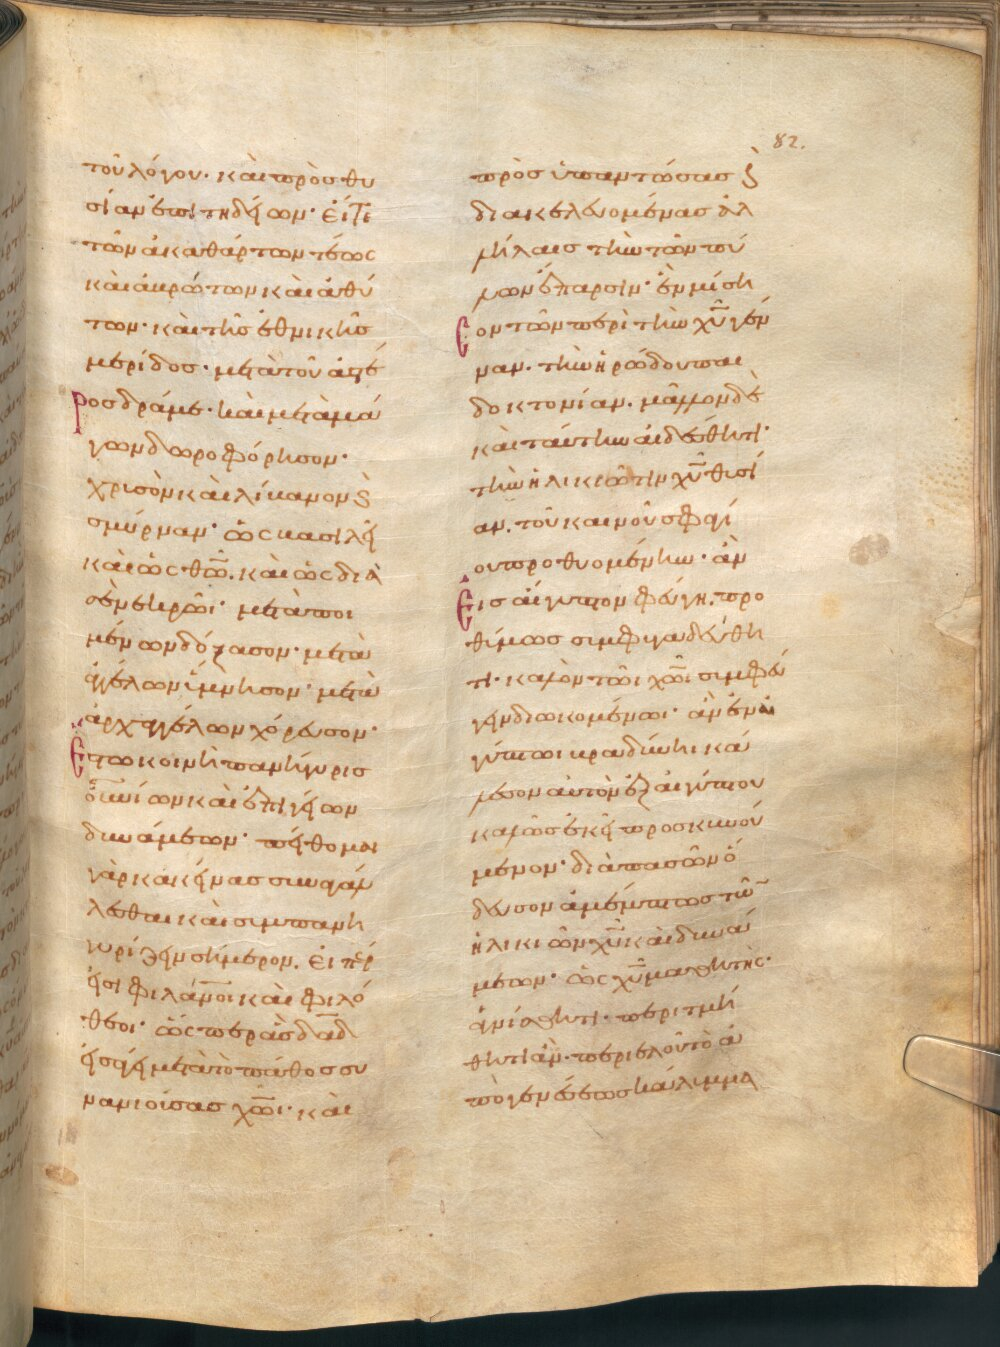 82.
τοῦ λόγου· καὶ πρὸς θυ
σίαν ἐπιτηδείων· εἴτε
τῶν ἀκαθάρτων τέως
καὶ ἀβρώτων καὶ ἀθύ
των· καὶ τῆς ἐθνικῆς
μερίδος· μετὰ τοῦ ἀστέ
ρος δράμε· καὶ μετὰ μά
γων δωροφόρησον·
χρυσὸν καὶ λίβανον ϗ
σμύρναν· ὡς βασιλεῖ
καὶ ὡς θῶ· καὶ ὡς διὰ
σὲ νεκρῶι· μετὰ ποι
μένων δόξασον· μετὰ
ἀγγέλων ὕμνησον· μετὰ
ἀρχαγγέλων χόρευσον·
Ἔστω κοινὴ πανήγυρις
οὐνίων καὶ ἐπιγείων
δυνάμεων· πείθομαι
γὰρ κἀκείνας συναγάλ
λεσθαι καὶ συμπανη
γυρίζειν σήμερον· εἴπερ
εἰσὶ φιλάνοι καὶ φιλό
θεοι· ὥσπερ ἃς δαδ
εἰσάγει μετὰ τὸ πάθος συ
νανιούσας χῶι· καὶ
προσυπαντώσας ϗ
διακελευομένας ἀλ
λήλαις τὴν τῶν πυ
λῶν ἔπαρσιν· ἓν μίση
σον τῶν περὶ τὴν χυ γέν
ναν· τὴν ἡρώδου παι
δοκτονίαν· μᾶλλον δὲ
καὶ ταύτην αἰδέσθητι·
τὴν ἡλικιῶτιν χυ θυσί
αν· τοῦ καινοῦ σφαγί
ου προθυομένην· ἂν
Εἰς αἴγυπτον φεύγη· προ
θύμως συμφυγαδεύθη
τι· καλὸν τῶι χῶι συμφεύ
γειν διωκομένωι· ἂν ἐν αἰ
γύπτωι βραδύνηι κά
λεσον αὐτὸν ἐξ αἰγύπτου
καλῶς ἐκεῖ προσκυνού
μενον· διὰ πασῶν ὅ
δευσον ἀμέμπτως τῶν
ἡλικιῶν χυ καὶ δυνά
μεων· ὡς χυ μαθητής·
ἁγνίσθητι· περιτμή
θητι ἂν· περιελοῦ τὸ ἀ
πὸ γενέσεως κάλυμμα